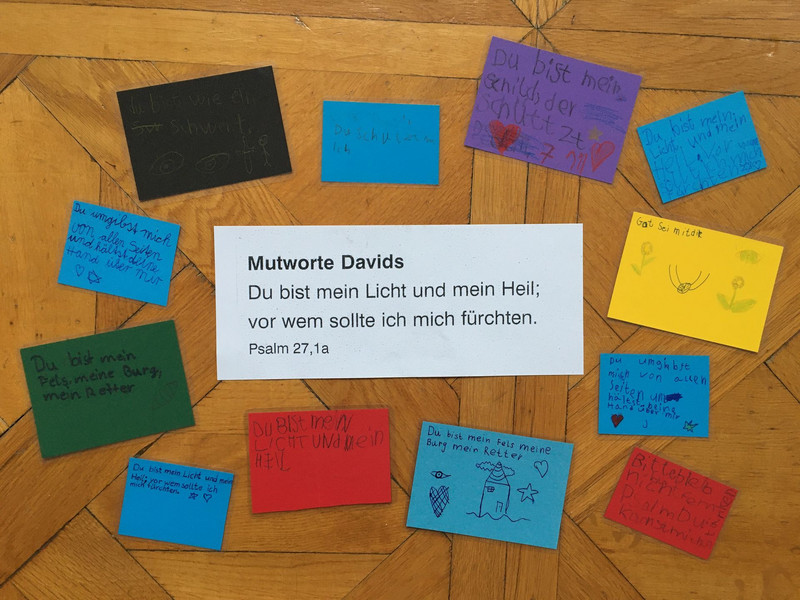 Schwert.
Du bist mein
Schilch der
Schützt
Du bist mein
Licht und mein
Du umgibst mich
von allen Seiten
und hältst deine
Hand über mir
Got sei mit dir
Mutworte Davids
Du bist mein Licht und mein Heil;
vor wem sollte ich mich fürchten.
Psalm 27,1a
Du bist mein
Fels, meine Burg,
mein Retter
Du umgibst
mich von allen
Seiten und
hältst deine
Hand über mir
Du BIST MEIN
LICHT UND MEIN
HEIL
Du bist mein Fels meine
Burg mein Retter
Du bist mein Licht und mein
Heil; vor wem sollte ich
mich fürchten.